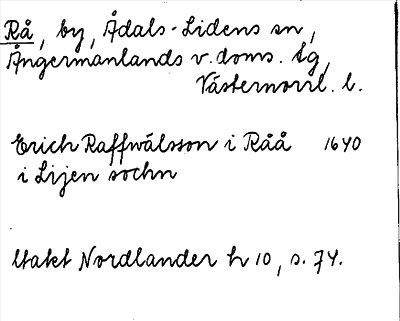 Rå, by, Ådals-Lidens sn,
Ångermanlands v. doms. tg,
Västernorrl. l.
Erich Raffwålsson i Råå 1640
i Lijen sochn
Utakt Nordlander h 10, s. 74.